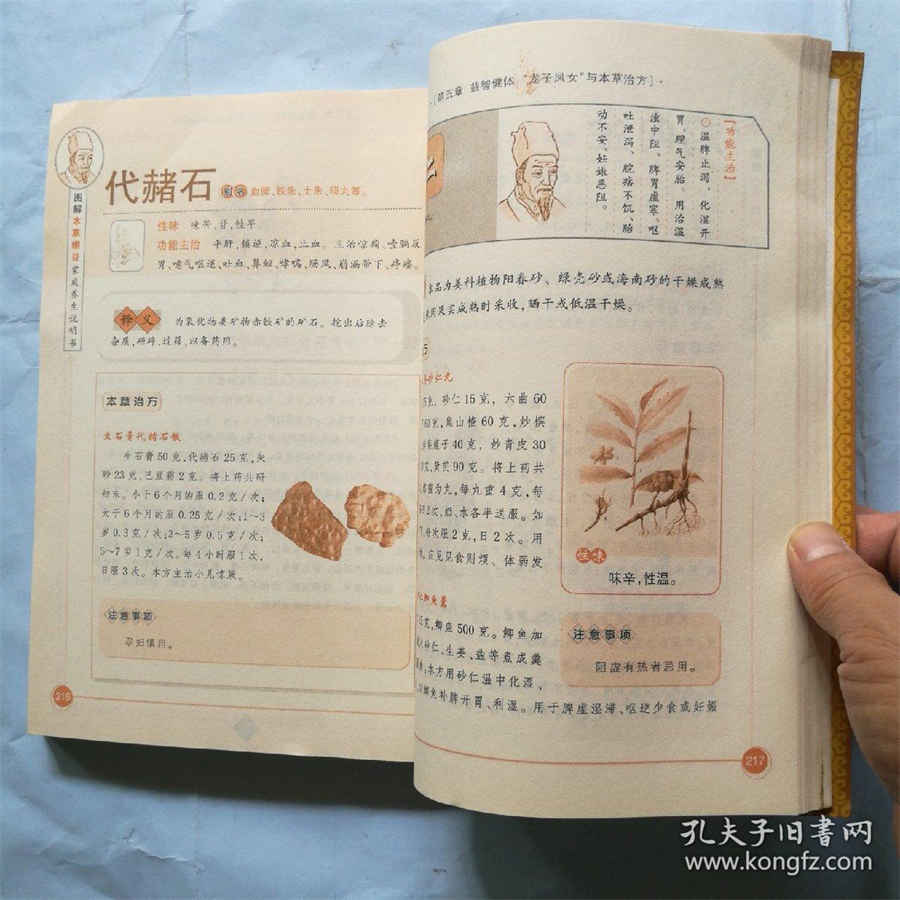 图解本草纲目家庭养生说明书
代赭石
别名 血师、铁朱、土朱、
性味
功能主治 平肝,镇逆,凉血,止血。主治惊痫,噎膈反
胃,噫气呕逆,吐血,鼻衄,哮喘,肠风,崩漏带下,疟疾。
释义 为氧化物类矿物赤铁矿的矿石。挖出后除去
杂质,砸碎,过筛,以备药用。
本草治方
生石膏代赭石散
生石膏50克,代赭石25克,朱
砂23克,巴豆霜2克。将上药共研
细末。小于6个月的服0.2克/次;
大于6个月的服0.25克/次;1~3
岁0.3克/次;3~5岁0.5克/次;
5~7岁1克/次。每4小时服1次,
日服3次。本方主治小儿惊厥。
注意事项
孕妇慎用。
216
[第五章 益智健体 “龙子凤女”与本草治方]
【功能主治】
温脾止泻,化湿开
胃,理气安胎。用治湿
浊中阻,脾胃虚寒,呕
吐泄泻,脘痞不饥,胎
动不安,妊娠恶阻。
本品为姜科植物阳春砂、绿壳砂或海南砂的干燥成熟
果实成熟时采收,晒干或低温干燥。
方
砂仁丸
5克,砂仁15克,六曲60
60克,焦山楂60克,炒槟
40克,炒青皮30
克,黄芪90克。将上药共
为丸,每丸重4克,每
2次,水各半送服。如
服2克,日2次。用
食则烦、体弱发
性味
味辛,性温。
克,鲫鱼500克。鲫鱼加
砂仁、生姜、盐等煮成羹
本方用砂仁温中化湿,
鲫鱼补脾开胃、利湿。用于脾虚湿滞、呕逆少食或妊娠
注意事项
阴虚有热者忌用。
217
孔夫子旧书网
www.kongfz.com